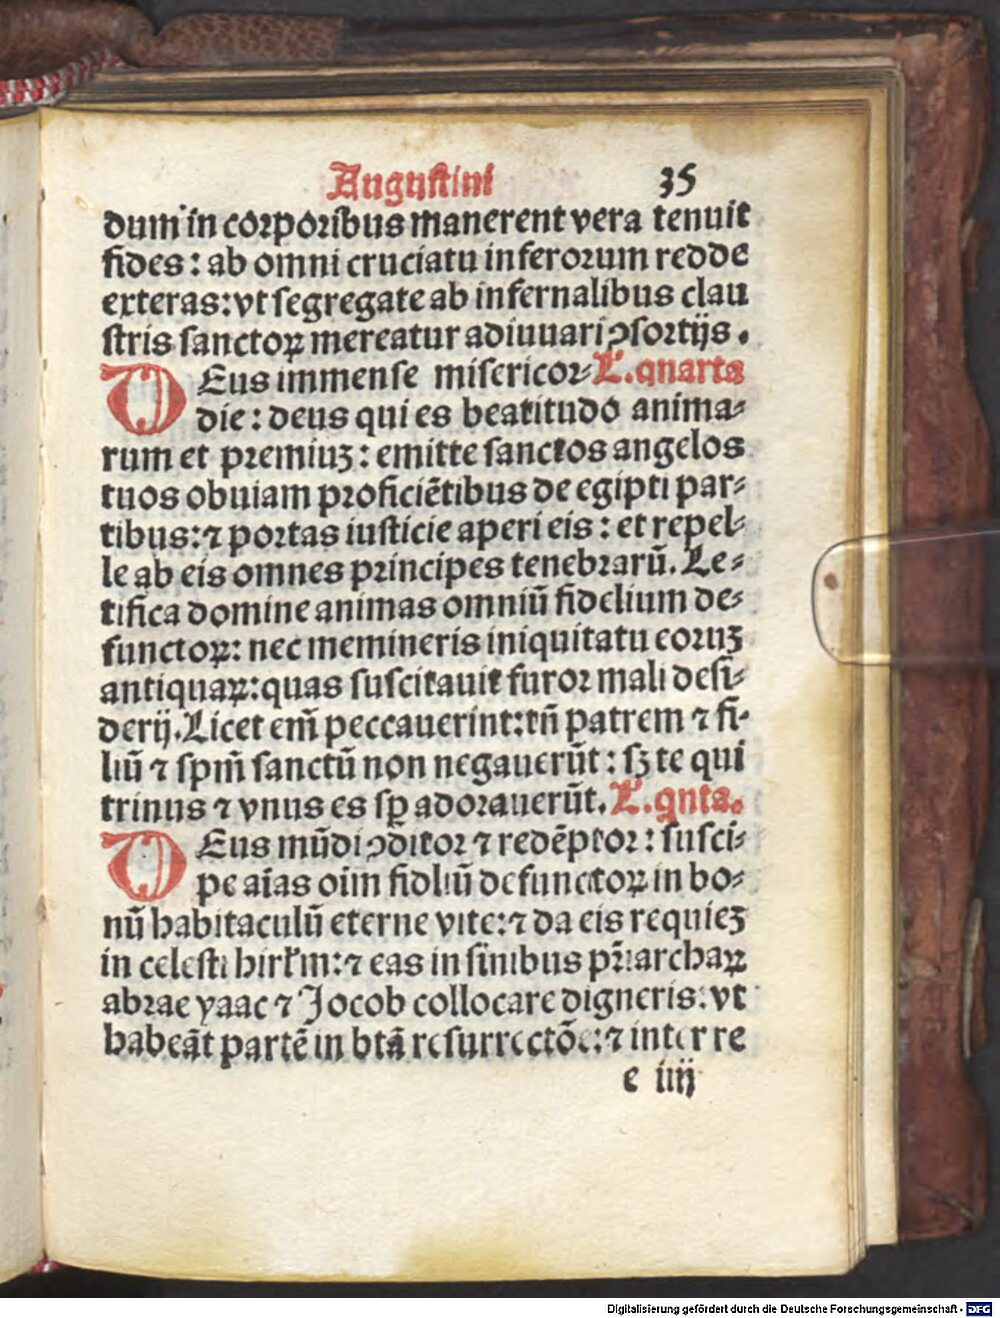 Augustini 35
dum in corporibus manerent vera tenuit
fides: ab omni cruciatu inferorum redde
exteras: vt segregate ab infernalibus clau
stris sanctoꝝ mereatur adiuuari ꝯsortijs.
DEus immense misericor⸗ L. quarta
die: deus qui es beatitudo anima⸗
rum et premiuꝫ: emitte sanctos angelos
tuos obuiam proficiẽtibus de egipti par⸗
tibus: ⁊ portas iusticie aperi eis: et repel⸗
le ab eis omnes principes tenebrarũ. Le⸗
tifica domine animas omniũ fidelium de⸗
functoꝝ: nec memineris iniquitatu eoruꝫ
antiquaꝝ: quas suscitauit furor mali desi⸗
derij. Licet em̃ peccauerint: tñ patrem ⁊ fi⸗
liũ ⁊ spm̃ sanctũ non negauerũt: sꝫ te qui
trinus ⁊ vnus es sp̱ adorauerũt. L. qnta.
DEus mũdi ꝯditor ⁊ redẽptor: susci⸗
pe aĩas oim fidliũ defunctoꝝ in bo⸗
nũ habitaculũ eterne vite: ⁊ da eis requieꝫ
in celesti hirłm: ⁊ eas in sinibus pr̃iarchaꝝ
abrae yaac ⁊ Jocob collocare digneris: vt
habeãt partẽ in btã resurrectõe: ⁊ inter re
e iiij
Digitalisierung gefördert durch die Deutsche Forschungsgemeinschaft - DFG